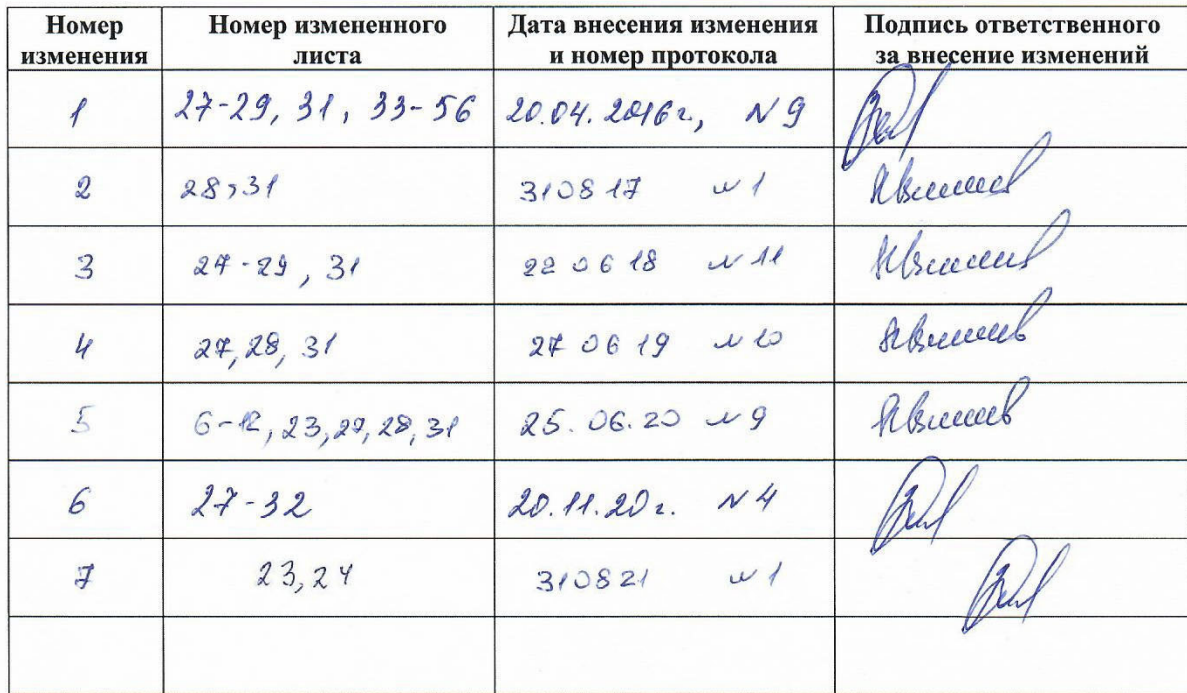 Номер изменения Номер измененного листа Дата внесения изменения и номер протокола Подпись ответственного за внесение изменений
1 27-29, 31, 33-56 20.04.2016г., N9
2 28,31 310817 N1
3 27-29, 31 220618 N11
4 27,28,31 270619 N10
5 6-12,23,27,28,31 25.06.20 N9
6 27-32 20.11.20г. N4
7 23,24 310821 N1